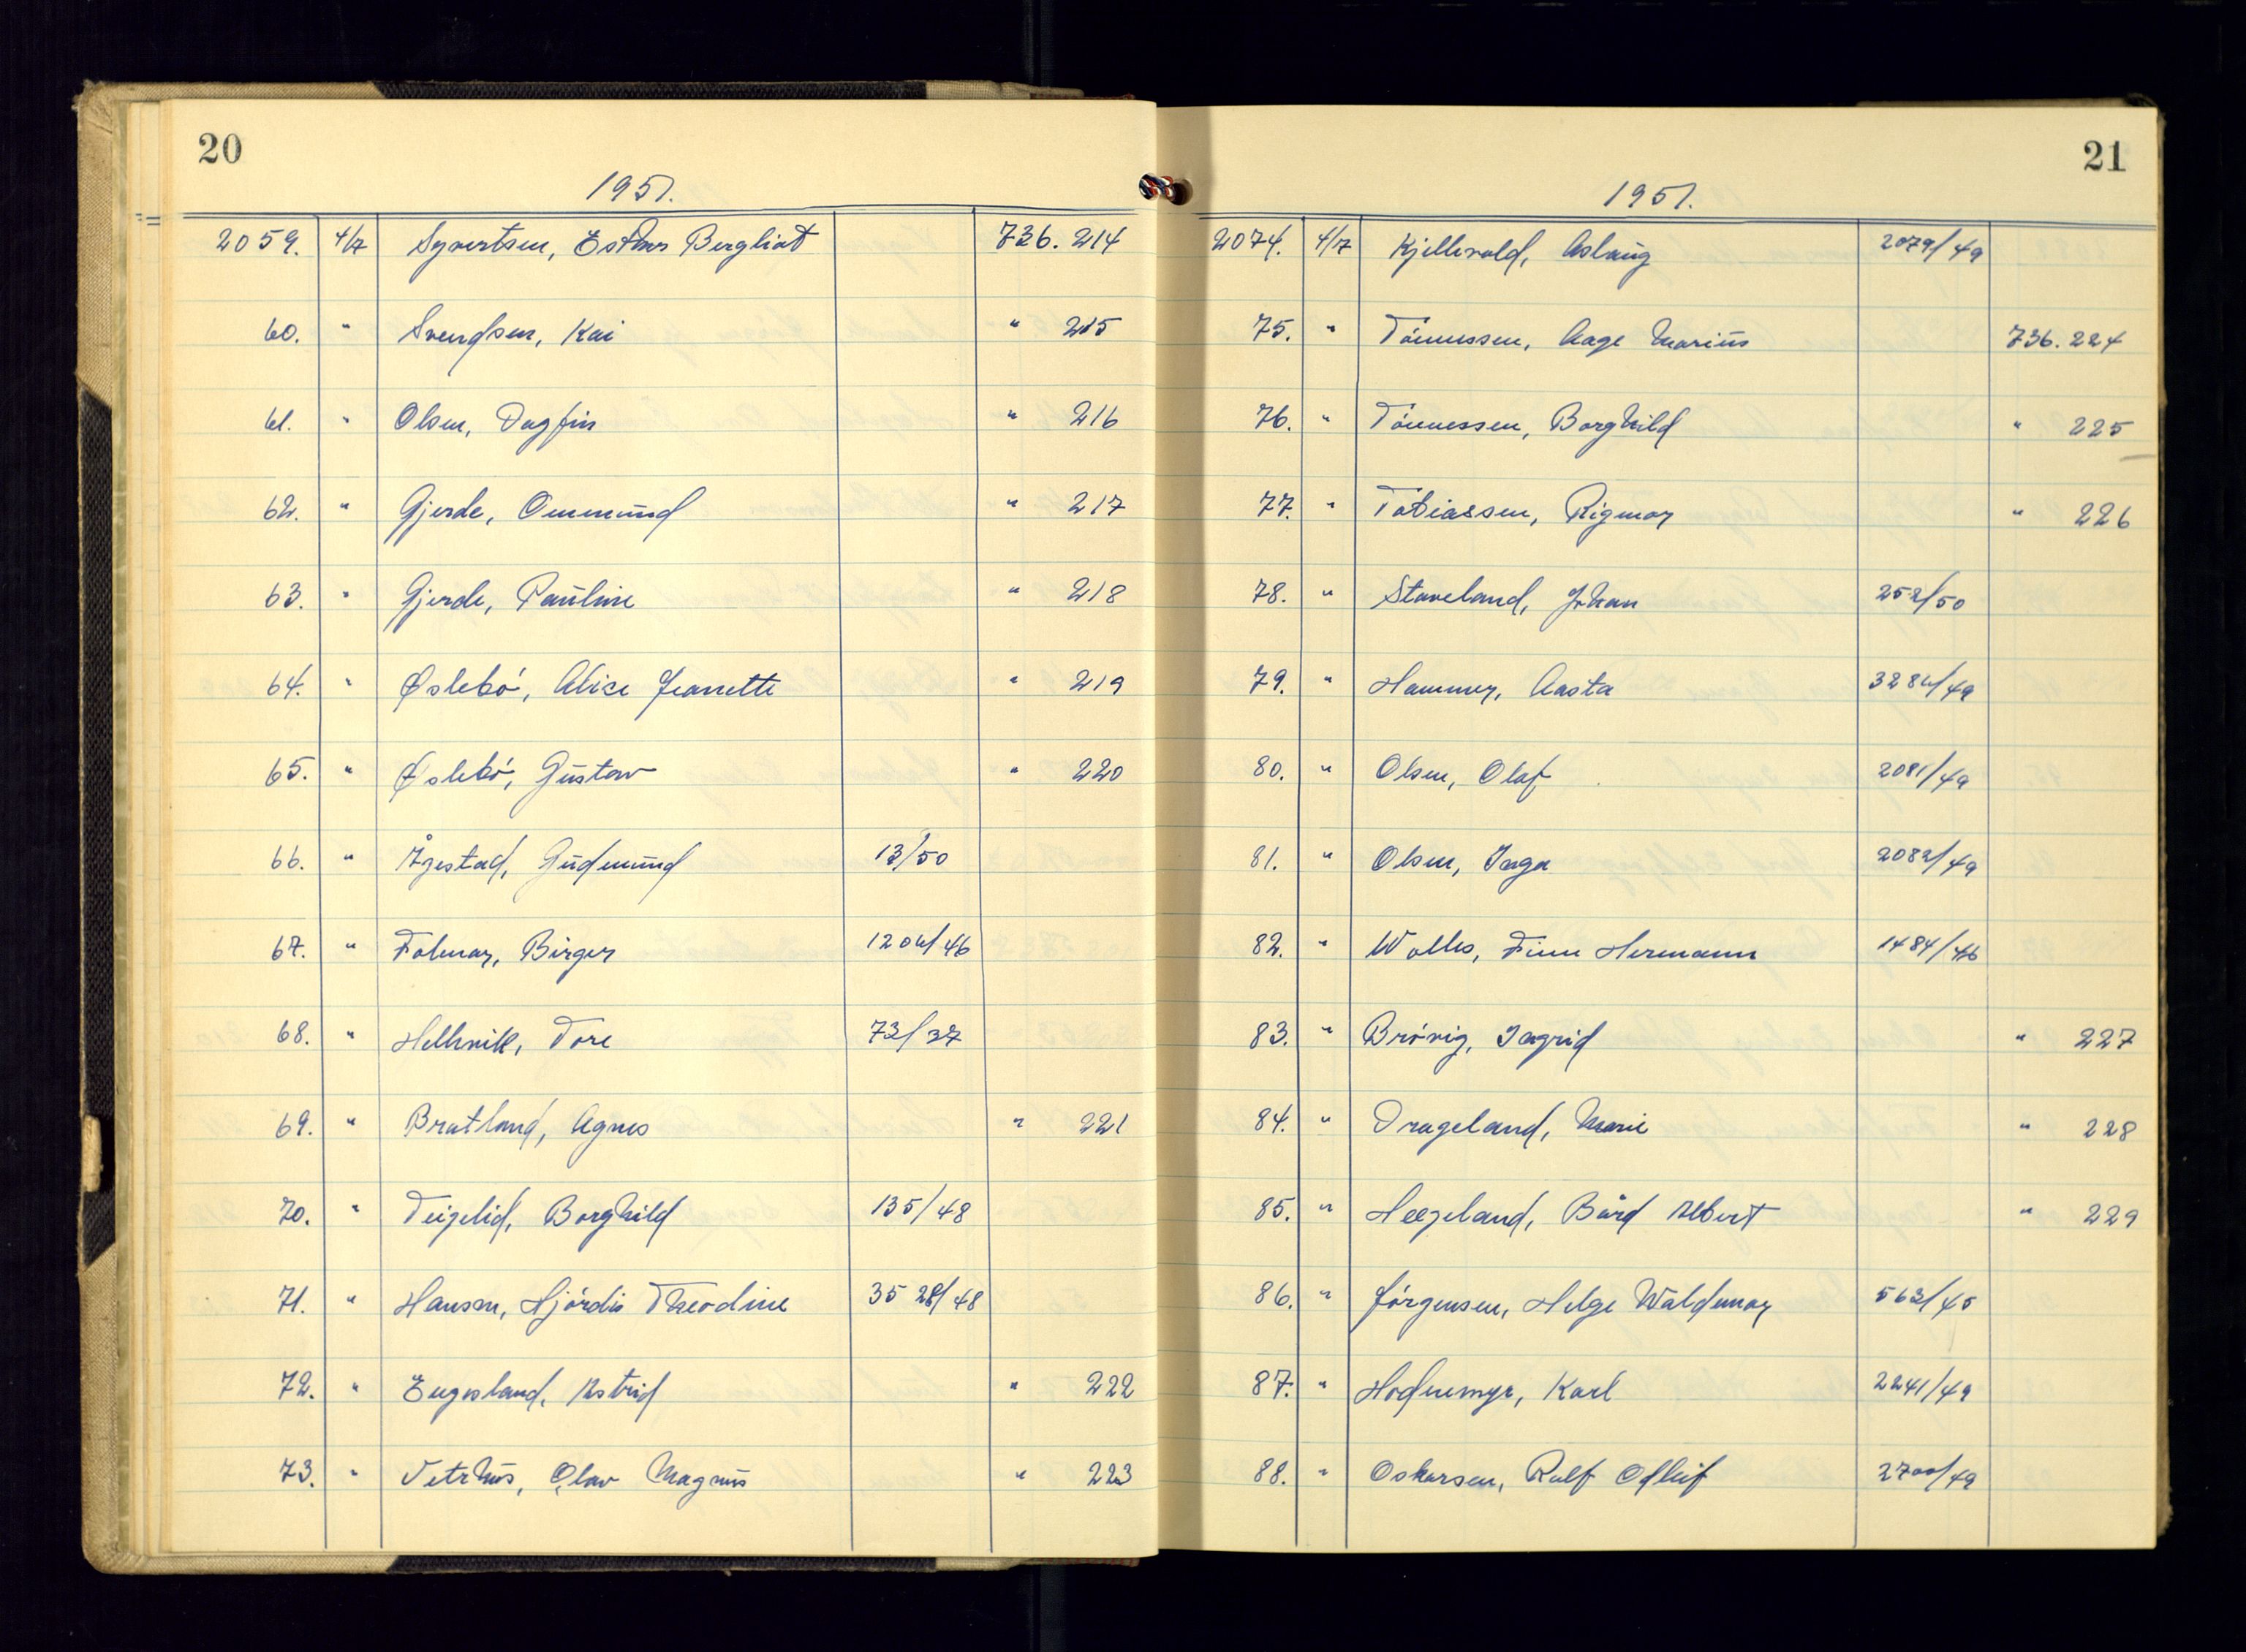 20
1951.
2059. 4/7 Syvertsen, Esther Bergliot 736. 214
60. " Svendsen, Kai " 215
61. " Olsen, Dagfin " 216
62. " Gjerde, Ommund " 217
63. " Gjerde, Pauline " 218
64. " Øslebö, Alice Jeanette " 219
65. " Øslebö, Gustav " 220
66. " Ågestad, Gudmund 13/50
67. " Folmar, Birger 1204/46
68. " Hellevik, Tore 73/37
69. " Bratland, Agnes " 221
70. " Teigelid, Borghild 135/48
71. " Hansen, Hjördis Theodine 3528/48
72. " Eugesland, Astrid " 222
73. " Vetrhus, Olav Magnus " 223
21
1951.
2074. 4/7 Kjellevold, Aslaug 2079/49
75. " Tönnessen, Aage Marius 736. 224
76. " Tönnessen, Borghild " 225
77. " Tobiassen, Rigmor " 226
78. " Staveland, Johan 252/50
79. " Hammer, Aasta 3284/49
80. " Olsen, Olaf 2081/49
81. " Olsen, Inga 2082/49
82. " Wolles, Finn Hermann 1484/46
83. " Brövig, Ingrid " 227
84. " Drageland, Marie " 228
85. " Heegeland, Bård Albert " 229
86. " Jörgensen, Helge Waldemar 563/45
87. " Hodnemyr, Karl 2241/49
88. " Oskarsen, Rolf Odleif 2700/49